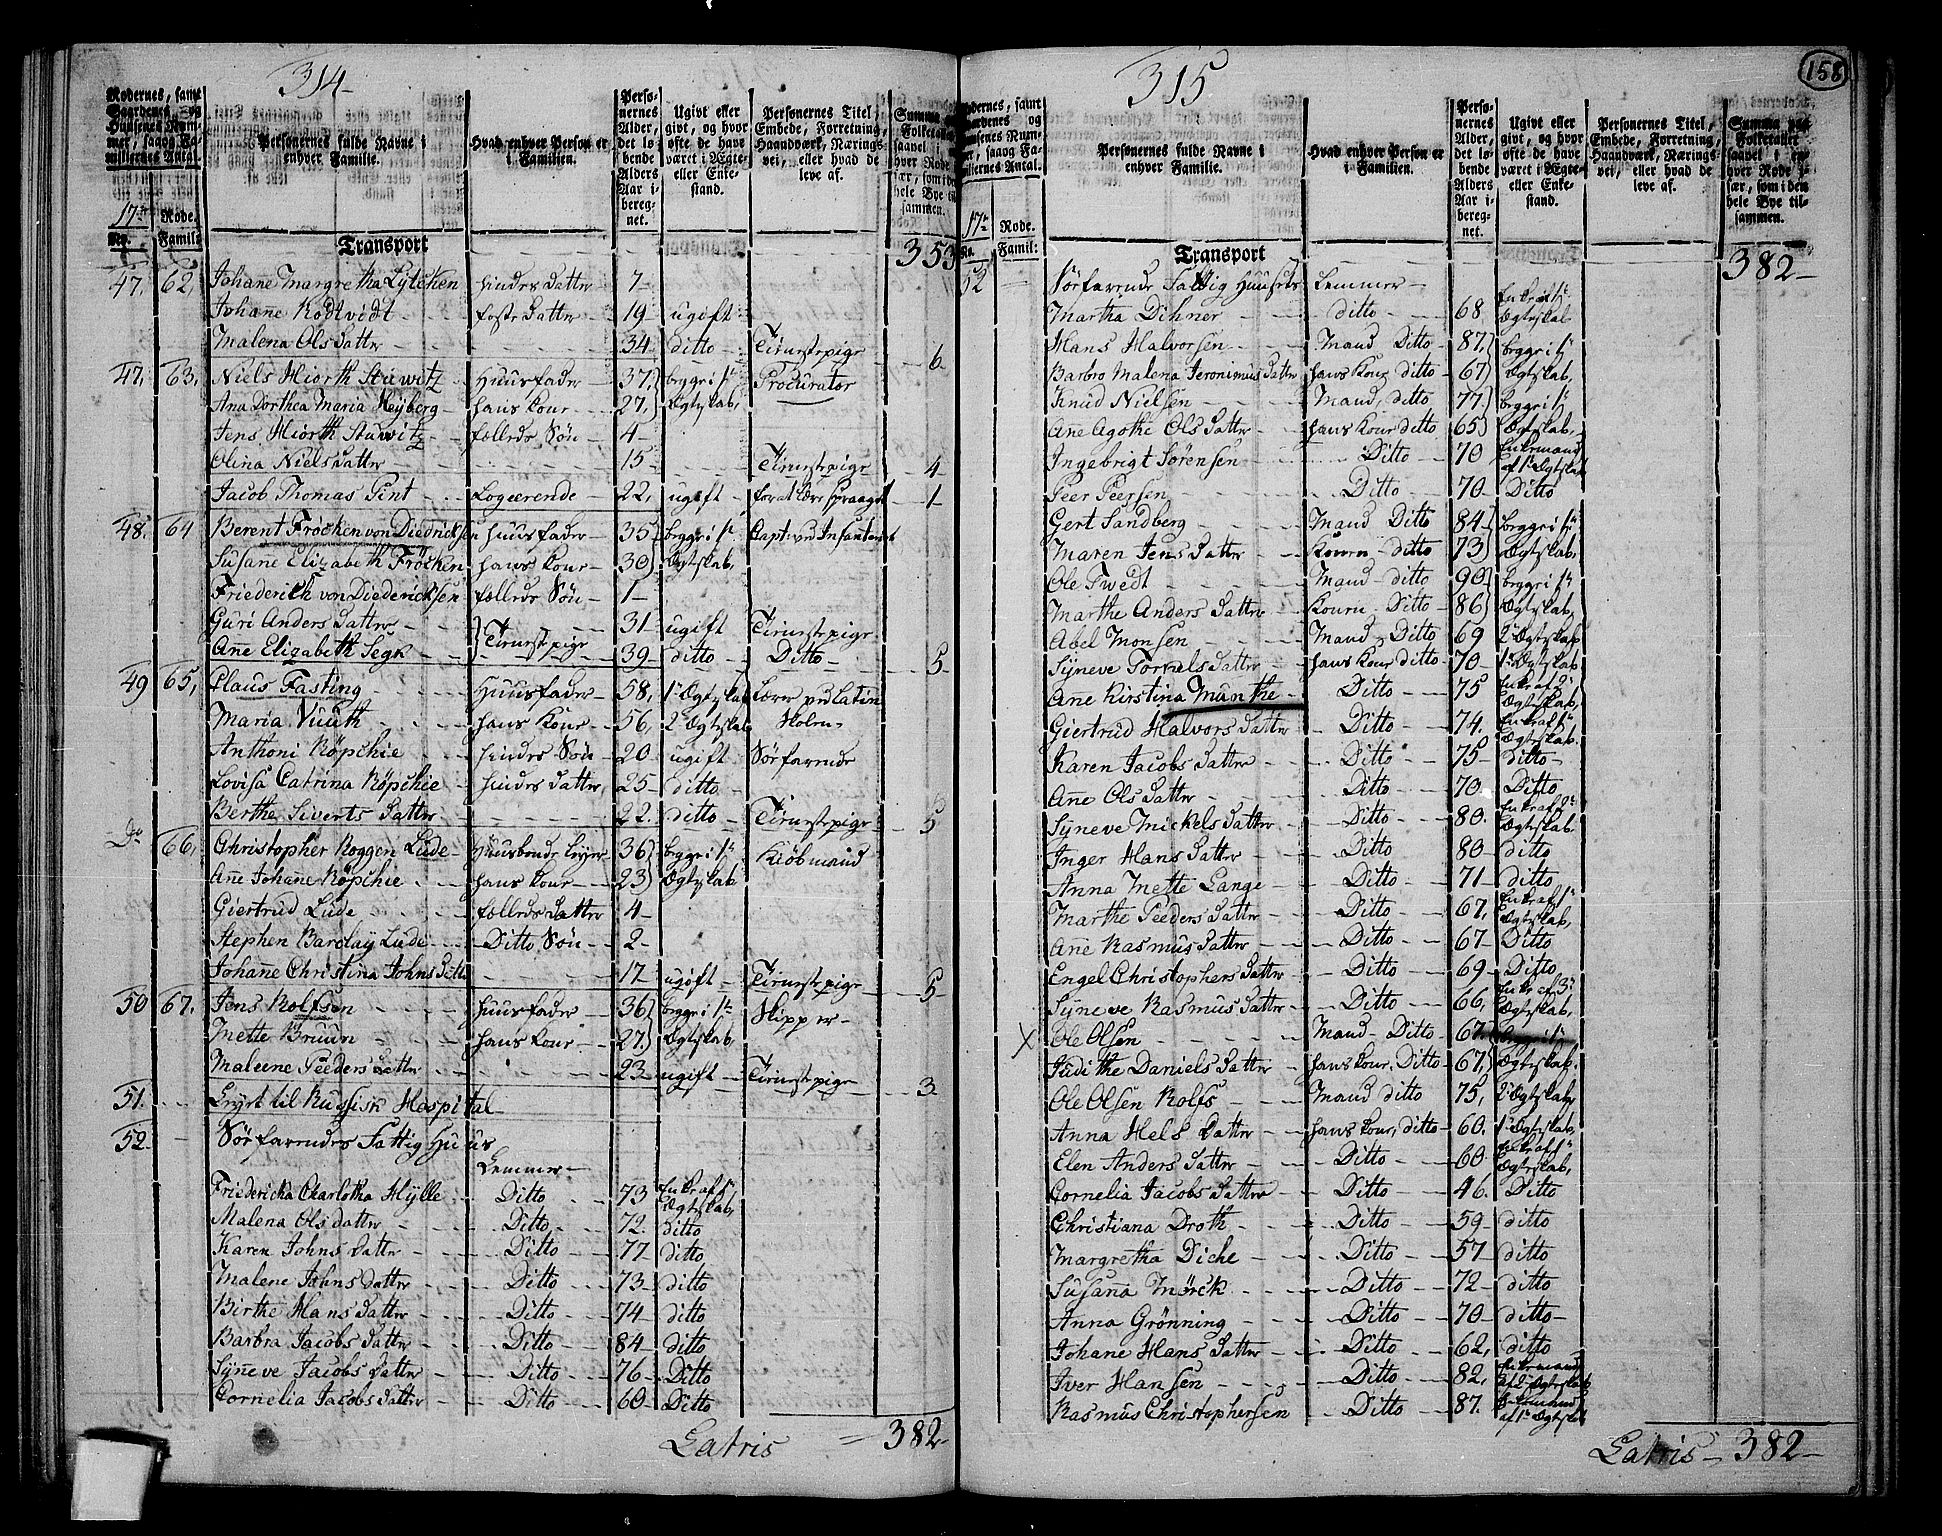 314
Rodernes, samt Gaardenes og Husenes Nummer, saaog Familliernes Antal.
Personernes fulde Navne i enhver Familie.
Hvad enhver Person er i Familien.
Personernes Alder, det løbende Alders Aar iberegnet.
Ugivt eller givt, og hvor ofte de have været i Ægte- eller Enkestand.
Personernes Titel, Embede, Forretning, Haandværk, Næringsvei, eller hvad de leve af.
Summa paa Folketallet saavel i enhver Rode især, som i den hele Bye tilsammen.
17de Rode.
No. Famil:
Transport 353
47. 62. Johañe Margretha Lytchen hindes datter 7
Johañe Rodtvidt foster datter 19 ugift
Malena Ols datter 34 ditto Tieneste pige 6
47. 63. Niels Hiorth Stuwitz Huusfader 37. begge i 1te Procurator
Ana Dorthea Maria Heyberg hans kone 27. Ægteskab,
Jens Hiorth Stuwitz fælleds Søn 4
Olina Niels datter 15 Tieneste pige 4
Jacob Thomas Pint Logeerende 22. ugift for at lære spraaget 1
48. 64 Berent Fröchen von Diedrichsen huusfader 35 begge i 1te Capt: ved Infanteriet
Susane Elizabeth Fröchen hans kone 30 Ægteskab,
Friederich von Diederichsen fælleds Søn 1
Guri Anders datter Tieneste pige 31 ugift Tieneste pige
Añe Elizabeth Segk 39 ditto Ditto 5
49 65, Claus Fasting Huusfader 58, 1te Ægteskab Lærer ved Latin
Maria Vuuth hans kone 56, 2de Ægteskab Skolen
Anthoni Röpchie hindes Søn 20 ugift Söefarende
Lovisa Catrina Röpchie hindes datter, 25 ditto
Berthe Siverts datter 22. ditto Tieneste pige 5
Do 66, Christopher Roggen Lude Huusbonde Leyer 36 begge i 1te Kiöbmand
Añe Johañe Röpchie hans kone 23 Ægteskab
Giertrud Lude fælleds datter 4
Stephen Barclay Lude Ditto Søn 2
Johañe Christina Johns datter 17 ugift Tieneste pige 5
50 67. Jens Rolfsen huusfader 36 begge i 1te Skipper
Mette Bruun hans kone 27. Ægteskab
Maleene Peeders datter 23 ugift Tieneste pige 3.
51. Leyet til Russisk Hospital
52. Sörfarendes Fattig Huus
Lemmer
Friedericka Charlotha Hylle Ditto 73 Enke af 1te Ægteskab,
Malena Ols datter Ditto 72. ditto
Karen Johns datter Ditto 77 ditto
Malene Johns datter Ditto 73 ditto
Birthe Hans datter Ditto 74 ditto
Barbra Jacobs datter Ditto 84 ditto
Syñeve Jacobs datter Ditto 76 Ditto
Cornelia Jacobs datter Ditto 60 Ditto
Latris = 382
315
158
Rodernes, samt Gaardenes og Husenes Nummer, saaog Familliernes Antal.
Personernes fulde Navne i enhver Familie.
Hvad enhver Person er i Familien.
Personernes Alder, det løbende Alders Aar iberegnet.
Ugivt eller givt, og hvor ofte de have været i Ægte- eller Enkestand.
Personernes Titel, Embede, Forretning, Haandværk, Næringsvei, eller hvad de leve af.
Summa paa Folketallet saavel i enhver Rode især, som i den hele Bye tilsammen.
17de Rode.
No. Famil:
Transport 382
52 Sörfarende Fattig Huusets Lemmer
Martha Dihner ditto 68 Enke af 1te Ægteskab
Hans Halvorsen Mand Ditto 87, begge i 1te
Barbro Malena Jeronimus datter hans kone ditto 67 Ægteskab,
Knud Nielsen Mand, ditto 77 begge i 1te
Ane Agothe Ols datter hans kone ditto 65 Ægteskab,
Ingebrigt Sörensen Ditto 70 Enkemand af 1te Ægteskab
Peer Peersen Ditto 70 Ditto
Gert Sandberg Mand Ditto 84 begge i 1te
Maren Jens datter konen ditto 73 Ægteskab,
Ole Twedt Mand ditto 90 begge i 1te
Marthe Anders datter konen Ditto 86 Ægteskab,
Abel Monsen Mand Ditto 69 2de Ægteskab
Syneve Tornels datter hans kone ditto 70 1te Ægteskab
Añe Kirstina Munthe Ditto 75 Enke af 2de Ægteskab,
Giertrud Halvors datter Ditto 74. Enke af 1te Ægteskab.
Karen Jacobs datter Ditto 75 ditto
Añe Ols datter Ditto 70 Ditto
Syneve Mickels datter Ditto 80. Enke af 2de Ægteskab
Inger Hans datter Ditto 80 ditto
Anna Mette Lange Ditto 71 ditto
Marthe Peeders datter Ditto 67, Enke af 1te Ægteskab,
Añe Rasmus datter Ditto 67 Ditto
Engel Christophers datter Ditto 69 Ditto
Syneve Rasmus datter Ditto 66, Enke af 3de Ægteskab,
X Ole Olsen Mand Ditto 67. begge i 1te
Judithe Daniels datter hans kone, Ditto 67, Ægteskab.
Ole Olsen Rolfs Mand ditto 75, 2de Ægteskab,
Anna Hels datter hans kone, ditto 60. 1te Ægteskab,
Elen Anders datter Ditto 60 Enke af 1te Ægteskab,
Cornelia Jacobs datter Ditto 46. Ditto
Christiana Droth Ditto 59 ditto
Margretha Diche Ditto 57 ditto
Susana Mörck Ditto 72 ditto
Anna Grönning Ditto 70 ditto
Johane Hans datter Ditto 62, ditto
Iver Hansen Ditto 82, Enkemand af 2de Ægteskab
Rasmus Christophersen Ditto 87. Enkemand af 1te Ægteskab
Latris 382